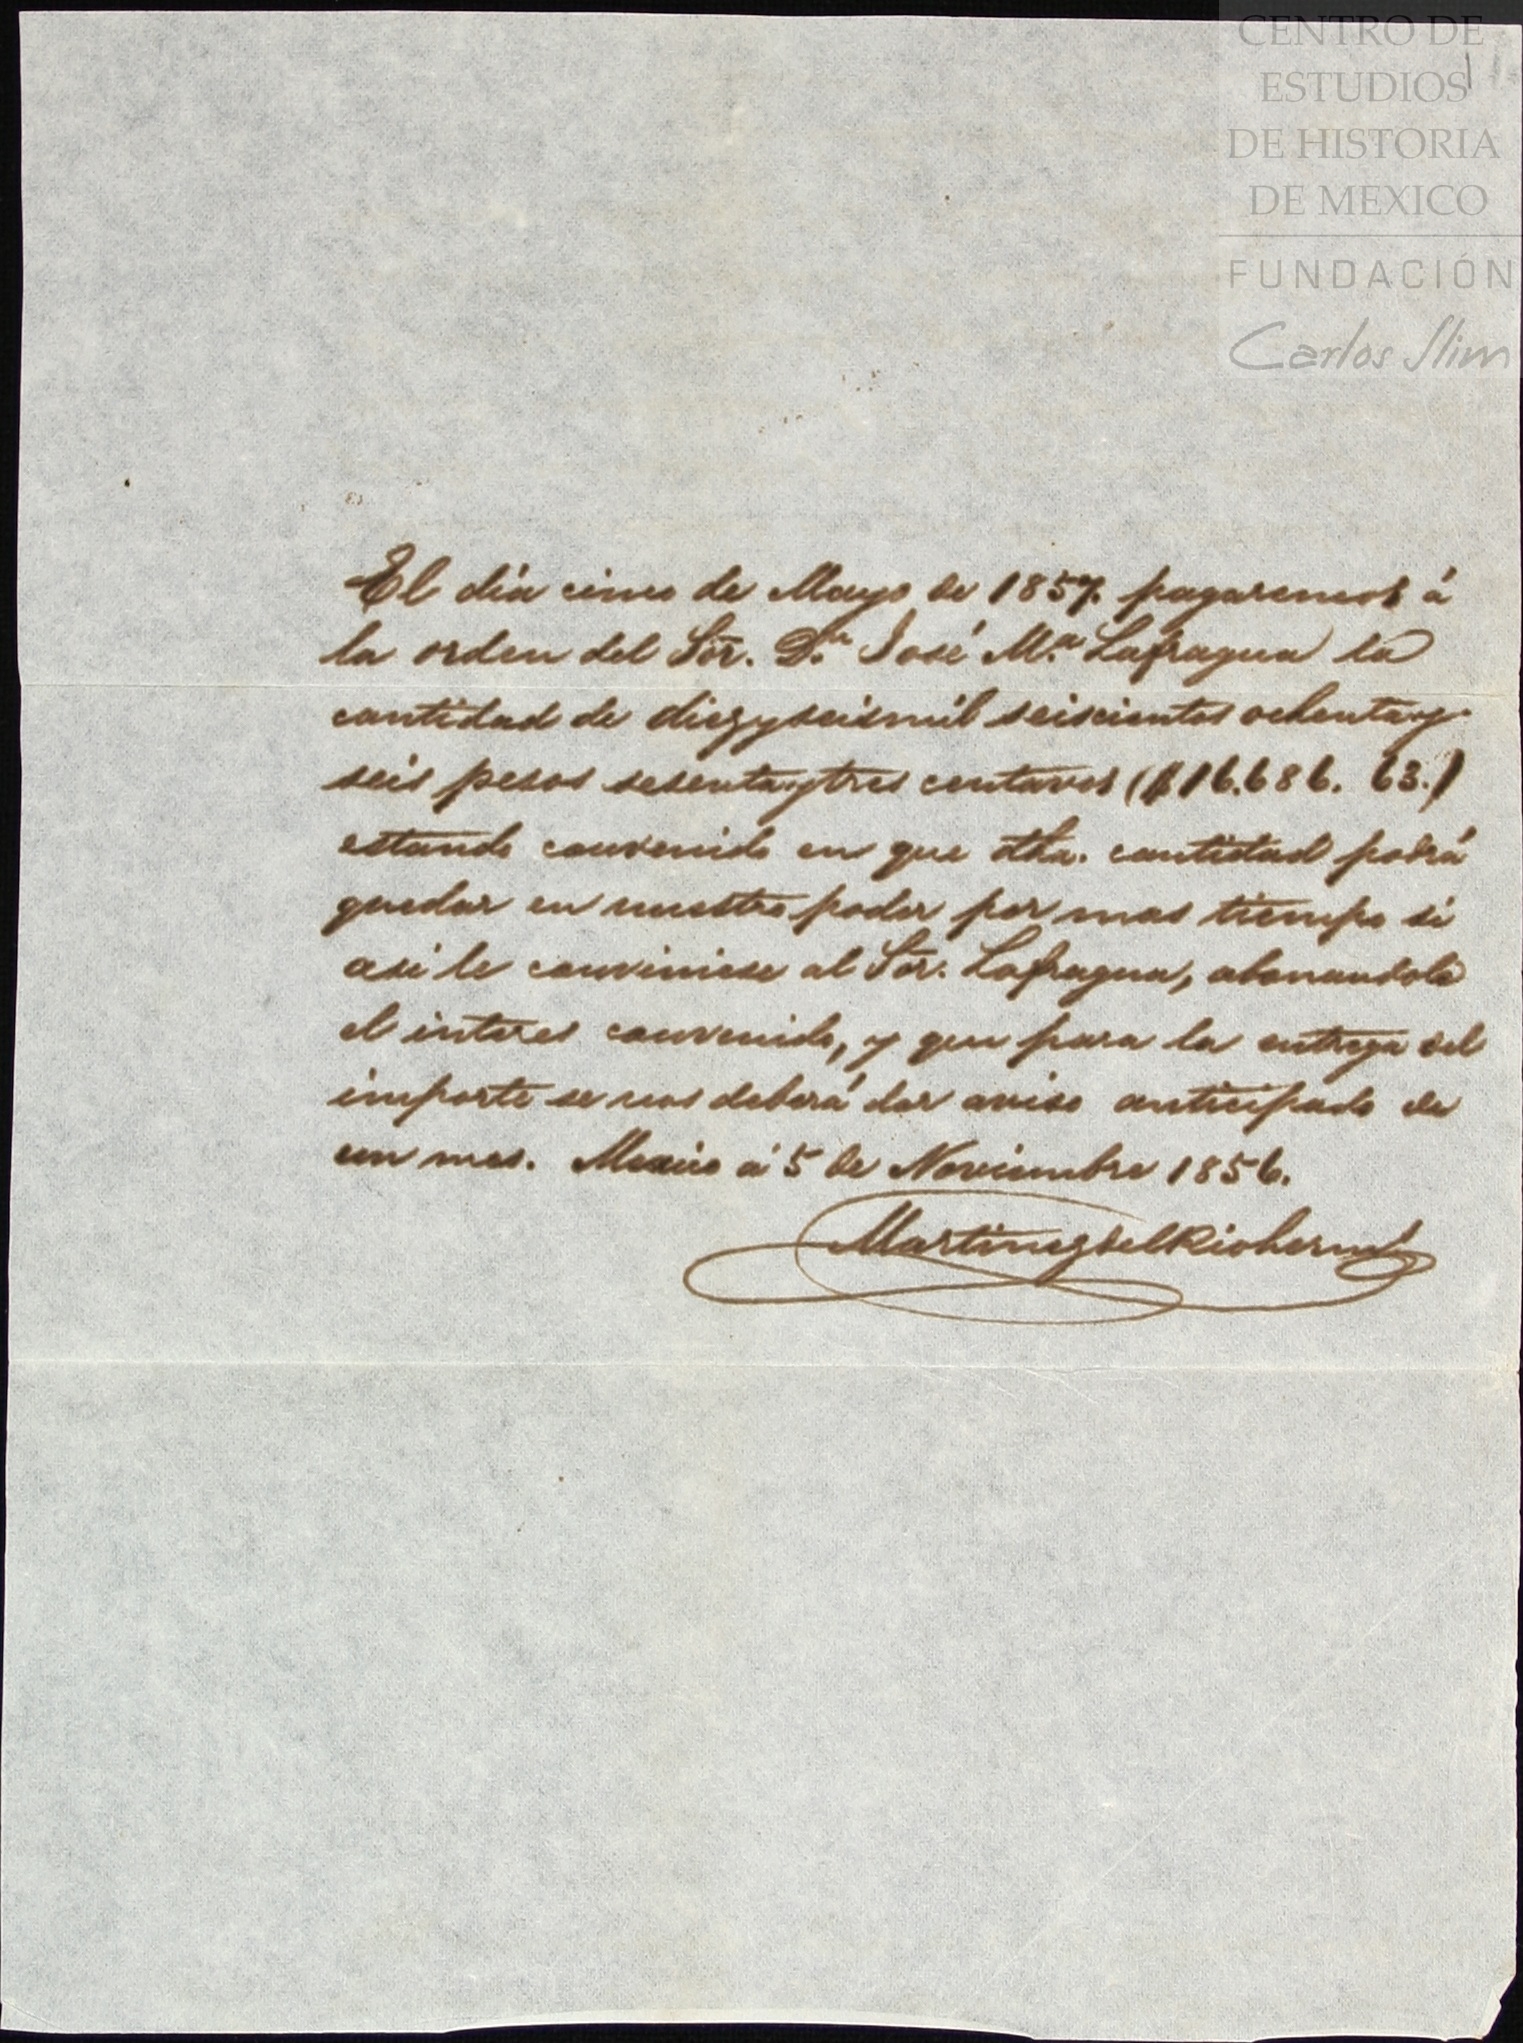 CENTRO DE
ESTUDIOS
DE HISTORIA
DE MEXICO
FUNDACIÓN
Carlos Slim
1
El dia cinco de Mayo de 1857. pagaremos á
la orden del Sor. Dn. José Ma. Lafragua la
cantidad de diezyseismil seiscientos ochentay
seis pesos sesentaytres centavos ($16.686. 63.)
estando convenido en que dha. cantidad podrá
quedar en nuestro poder por mas tiempo si
asi le conviniese al Sor. Lafragua, abonandole
el interes convenido, y que para la entrega del
importe se nos deberá dar aviso anticipado de
un mes. Mexico á 5 de Noviembre 1856.
Martinez del Rio herms